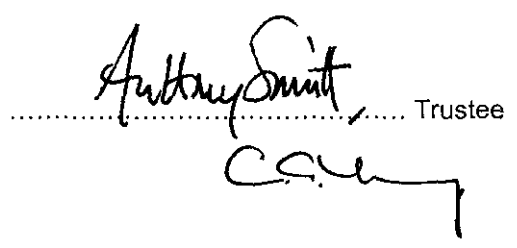 Anthony Smith
........................................ Trustee
C.C.